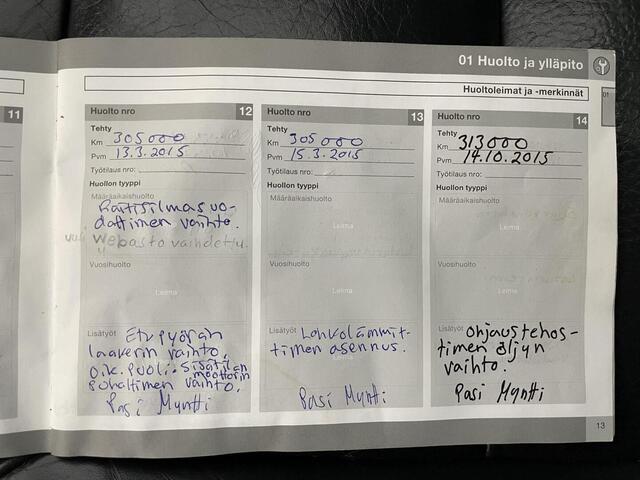 01 Huolto ja ylläpito
Huoltoleimat ja -merkinnät
01
11
Huolto nro 12
Tehty
Km 305000
Pvm 13.3.2015
Työtilaus nro:
Huollon tyyppi
Määräaikaishuolto
Raitisilmasuo-
dattimen vaihto.
Webasto vaihdettu.
Vuosihuolto
Leima
Lisätyöt Etupyörän
laakerin vaihto,
oik. puoli. Sisätilan
puhaltimen moottorin vaihto.
Pasi Myntti
Huolto nro 13
Tehty
Km 305000
Pvm 15.3.2015
Työtilaus nro:
Huollon tyyppi
Määräaikaishuolto
Leima
Vuosihuolto
Leima
Lisätyöt Lohkolämmit-
timen asennus.
Pasi Myntti
Huolto nro 14
Tehty
Km 313000
Pvm 14.10.2015
Työtilaus nro:
Huollon tyyppi
Määräaikaishuolto
Leima
Vuosihuolto
Leima
Lisätyöt Ohjaustehos-
timen öljyn
vaihto.
Pasi Myntti
13